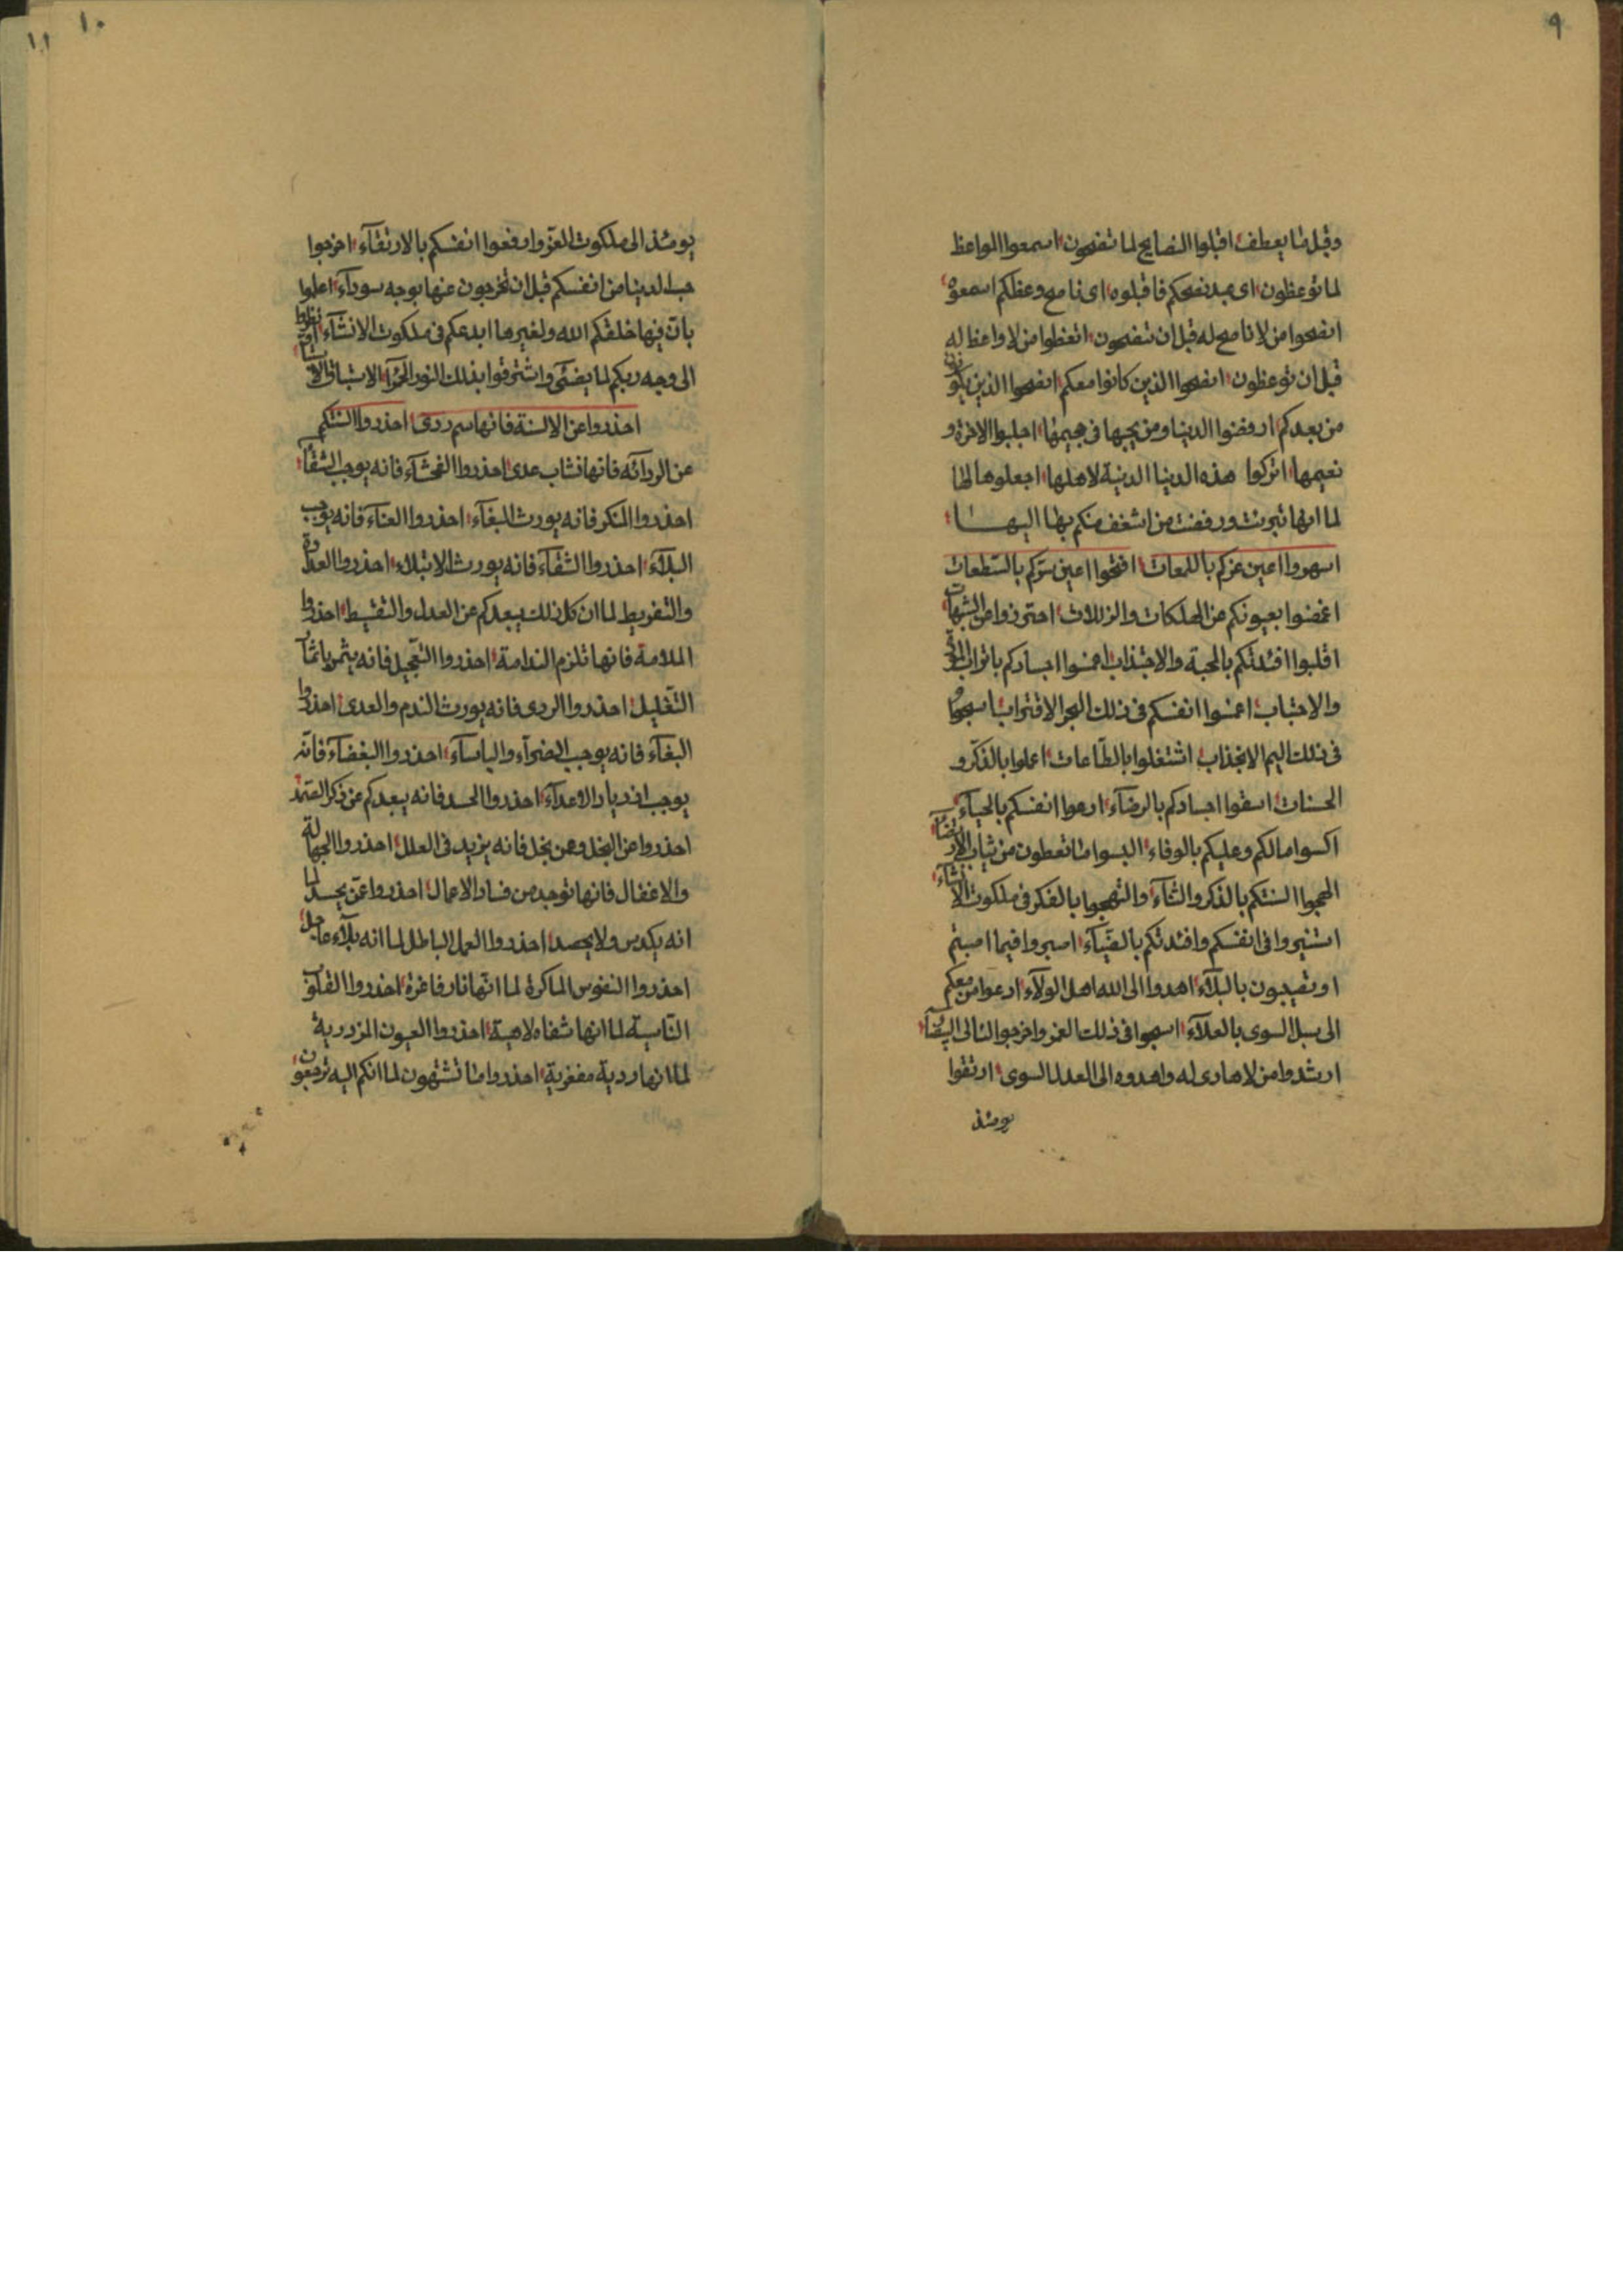 ٩
وقبل ما يعطف اقبلوا النصايح لما تنصحون اسمعوا المواعظ
لما توعظون اى عبد نصحكم فاقبلوه اى ناصح وعظكم اسمعوه
انصحوا من لا ناصح له قبل ان تنصحون اتعظوا من لا واعظ له
قبل ان توعظون انصحوا الذين كانوا معكم انصحوا الذين يكونون
من بعدكم ارفضوا الدنيا ومن يحبها فى جحيمها اجلبوا الاخرة و
نعيمها اتركوا هذه الدنيا الدنية لاهلها اجعلوها لها
لما انها تبرئت ورفضت من اشغف منكم بها اليها
اسهروا اعين عزكم باللمعات افتحوا اعين سركم بالسطعات
اغمضوا بعيونكم عن المهلكات والزللات احترزوا من الشبهات
اقلبوا افئدتكم بالمحبة والاجتذاب اغمسوا اجسادكم باتراب
والاجتناب اغمسوا انفسكم فى ذلك البحر الاقتراب اسبحوا
فى ذلك اليم الانجذاب اشتغلوا بالطاعات اعملوا بالذكر و
الحسنات اسقوا اجسادكم بالرضآء ادعوا انفسكم بالحيآء
اكسوا مالكم وعليكم بالوفاء البسوا ما تعطون من ثياب الارتضآء
الهجوا السنتكم بالذكر والثنآء والتهجوا بالفكر فى ملكوت الانشآء
استنيروا فى انفسكم وافئدتكم بالضيآء اصبروا فيما اصبتم
او تصيبون بالبلآء اهدوا الى الله اهل الولآء ادعوا من معكم
الى سبل السوى بالعلآء اسبحوا فى ذلك الغمر واخرجوا لئالى البيضآء
ارشدوا من لا هادى له واهدوه الى العدل السوى ارتقوا
يومئذ
١٠
١١
يومئذ الى ملكوت العز وارفعوا انفسكم بالارتقآء اخرجوا
حب الدينا من انفسكم قبل ان تخرجون عنها بوجه سودآء اعلموا
بان فيها خلقكم الله ولغيرها ابدعكم فى ملكوت الانشآء انظروا
الى وجه ربكم لما يضيئ واشترقوا بذلك النور الحمرآء
احذروا عن الالسنة فانها سم ردى احذروا السنتكم
عن الردائه فانها نشاب عدى احذروا الفحشآء فانه يوجب الشقآء
احذروا المنكر فانه يورث البغآء احذروا العنآء فانه يوجب
البلآء احذروا الشقآء فانه يورث الابتلاء احذروا العداوة
والتفريط لما ان كل ذلك يبعدكم عن العدل والتقسيط احذروا
الملامة فانها تلزم الندامة احذروا التعجيل فانه يثمر باثمار
التقليل احذروا الردى فانه يورث الندم والعدى احذروا
البغآء فانه يوجب الضرآء والباسآء احذروا البغضآء فانه
يوجب ازدياد الاعدآء احذروا الحسد فانه يبعدكم عن ذكر الصمد
احذروا عن البخل ومن بخل فانه يزيد فى العلل احذروا الجهالة
والاغفال فانها توجد من فساد الاعمال احذروا عمن يحسد لما
انه يكدس ولا يحصد احذروا العمل الباطل لما انه بلآء عاجل
احذروا النفوس الماكرة لما انها نار فاغرة احذروا القلوب
القاسية لما انها شفاه لاهية احذروا العيون المزدرية
لما انها ردية مفغرية احذروا ما تشتهون لما انكم اليه ترجعون